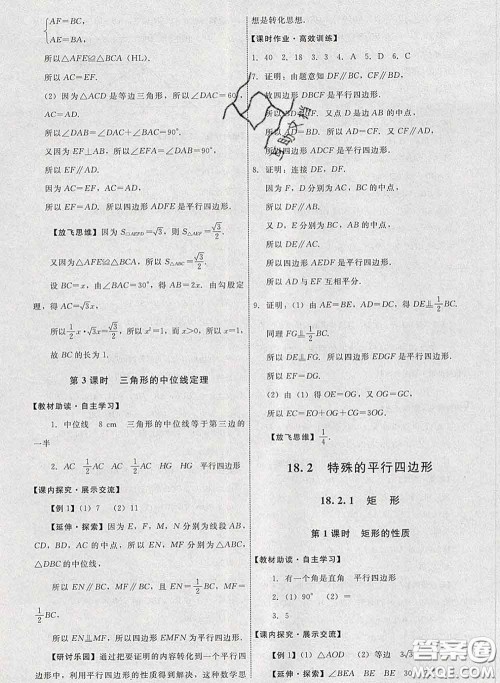 AF=BC,
AE=BA,
所以△AFE≌△BCA (HL).
所以 AC=EF.
(2) 因为△ACD 是等边三角形,
所以∠DAC=60°, AC=AD.
所以∠DAB=∠DAC+∠BAC=90°.
又因为 EF⊥AB, 所以∠EFA=90°=∠DAB.
所以 EF∥AD.
因为 AC=EF, AC=AD, 所以 EF=AD.
所以四边形 ADFE 是平行四边形.
【放飞思维】因为 S□AEFD=√3, 则 S△AEF=√3/2.
又因为△AFE≌△BCA, 所以 S△ABC=√3/2.
设 BC=x, 由(2), 得 AB=2x. 由勾股定
理, 得 AC=√3x.
所以 1/2 x·√3x=√3/2, 所以 x²=1, 所以 x=1,
故 BC 的长为 1.
第 3 课时 三角形的中位线定理
【教材助读·自主学习】
1. 中位线 8 cm 三角形的中位线等于第三边的
一半
2. AC 1/2AC 1/2AC HG HG 平行四边形
【课内探究·展示交流】
【例 1】(1) 7 (2) 11
【延伸·探索】因为 E, F, N, M 分别为线段
AB, AC, DC, DB 的中点, 所以 EN, MF 分别
为△ABC, △DBC 的中位线.
所以 EN∥BC, MF∥BC, 且 EN=1/2BC, MF=
1/2BC. 所以 EN∥MF, 且 EN=MF.
所以四边形 EMFN 为平行四边形.
【研讨乐园】通过把要证明的内容转化到一个
平行四边形, 利用平行四边形的性质来解决, 这种数学思
想是转化思想.
【课时作业·高效训练】
1. 40 2. 18 3. 3 4. A 5. D 6. C
7. 证明: 由题意知 DF∥BC, CF∥BD,
故四边形 DBCF 是平行四边形.
所以 DF=BC. 又点 D 是 AB 的中点,
所以四边形 ADCF 是平行四边形.
8. 证明: 连接 DE, DF.
因为 F, D 分别为 AC, BC 的中点,
所以 DF∥AB.
又 D, E 分别为 BC, AB 的中点,
所以 DE∥AC.
所以四边形 AEDF 是平行四边形.
所以 AD 与 EF 互相平分.
9. 证明: (1) 由 AE=BE, AD=DC, 得 DE⫽1/2BC.
同理 FG⫽1/2BC.
所以 DE⫽GF. 所以四边形 EDGF 是平行四边形.
(2) 由 (1) 得 OE=OG, 又 OG=GC,
所以 OE=OG=GC.
【放飞思维】1/4.
18.2 特殊的平行四边形
18.2.1 矩 形
第 1 课时 矩形的性质
【教材助读·自主学习】
1. 有一个角是直角 平行四边形
2. (1) 90° (2) =
3. 5
【课内探究·展示交流】
【例 1】(1) △AOD (2) 等边 3√3
【延伸·探索】∠BEA BE BE
作业帮
答案圈
MXQE.COM